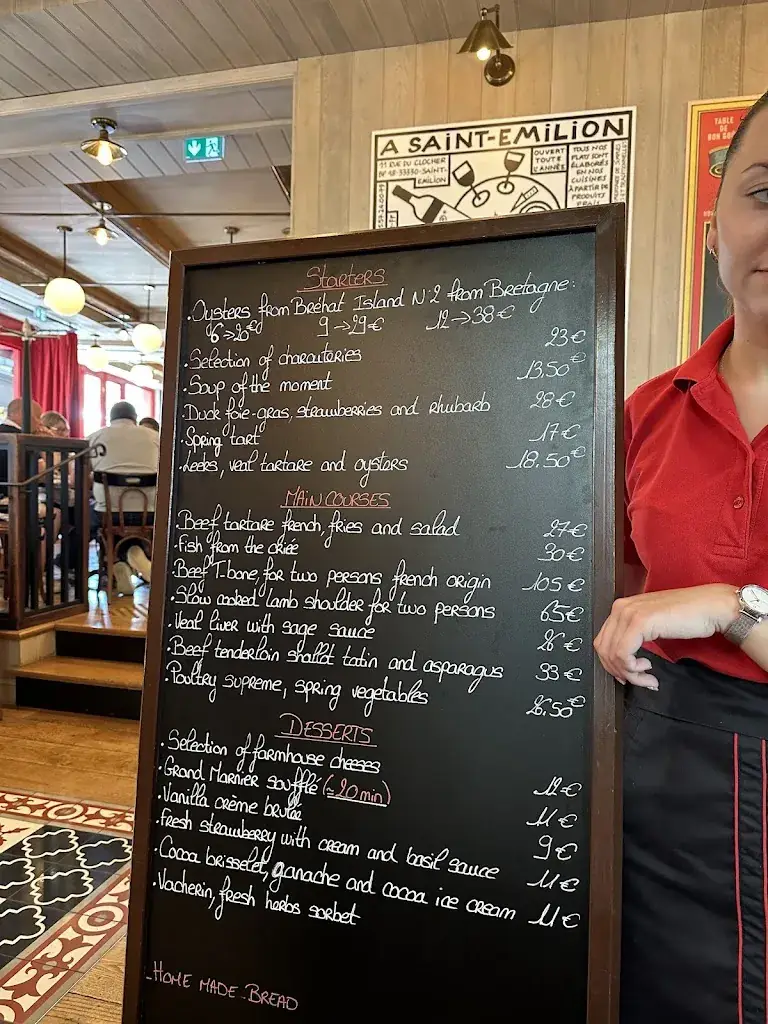 A SAINT-EMILION
11 RUE DU CLOCHER
BP 48 33330-SAINT-
EMILION
OUVERT
TOUTE
L'ANNÉE
TOUS NOS
PLATS SONT
ÉLABORÉS
EN NOS
CUISINES
À PARTIR DE
PRODUITS
FRAIS
TABLE
DE
BON GO
Starters
.Oysters from Bréhat Island N°2 from Bretagne:
6→20€ 9→29€ 12→38€
.Selection of charcuteries 23€
.Soup of the moment 13.50€
.Duck foie-gras, strawberries and rhubarb 28€
.Spring tart 17€
.Leeks, veal tartare and oysters 18.50€
MAIN COURSES
.Beef tartare french, fries and salad 27€
.Fish from the criée 30€
.Beef T-bone, for two persons french origin 105€
.Slow cooked lamb shoulder for two persons 65€
.Veal liver with sage sauce 26€
.Beef tenderloin shallot tatin and asparagus 33€
.Poultry supreme, spring vegetables 26.50€
DESSERTS
.Selection of farmhouse cheeses 12€
.Grand Marnier soufflé (≈20min) 11€
.Vanilla crème brulée 9€
.Fresh strawberry with cream and basil sauce 11€
.Cocoa brisselet, ganache and cocoa ice cream 11€
.Vacherin, fresh herbs sorbet
-HOME MADE BREAD